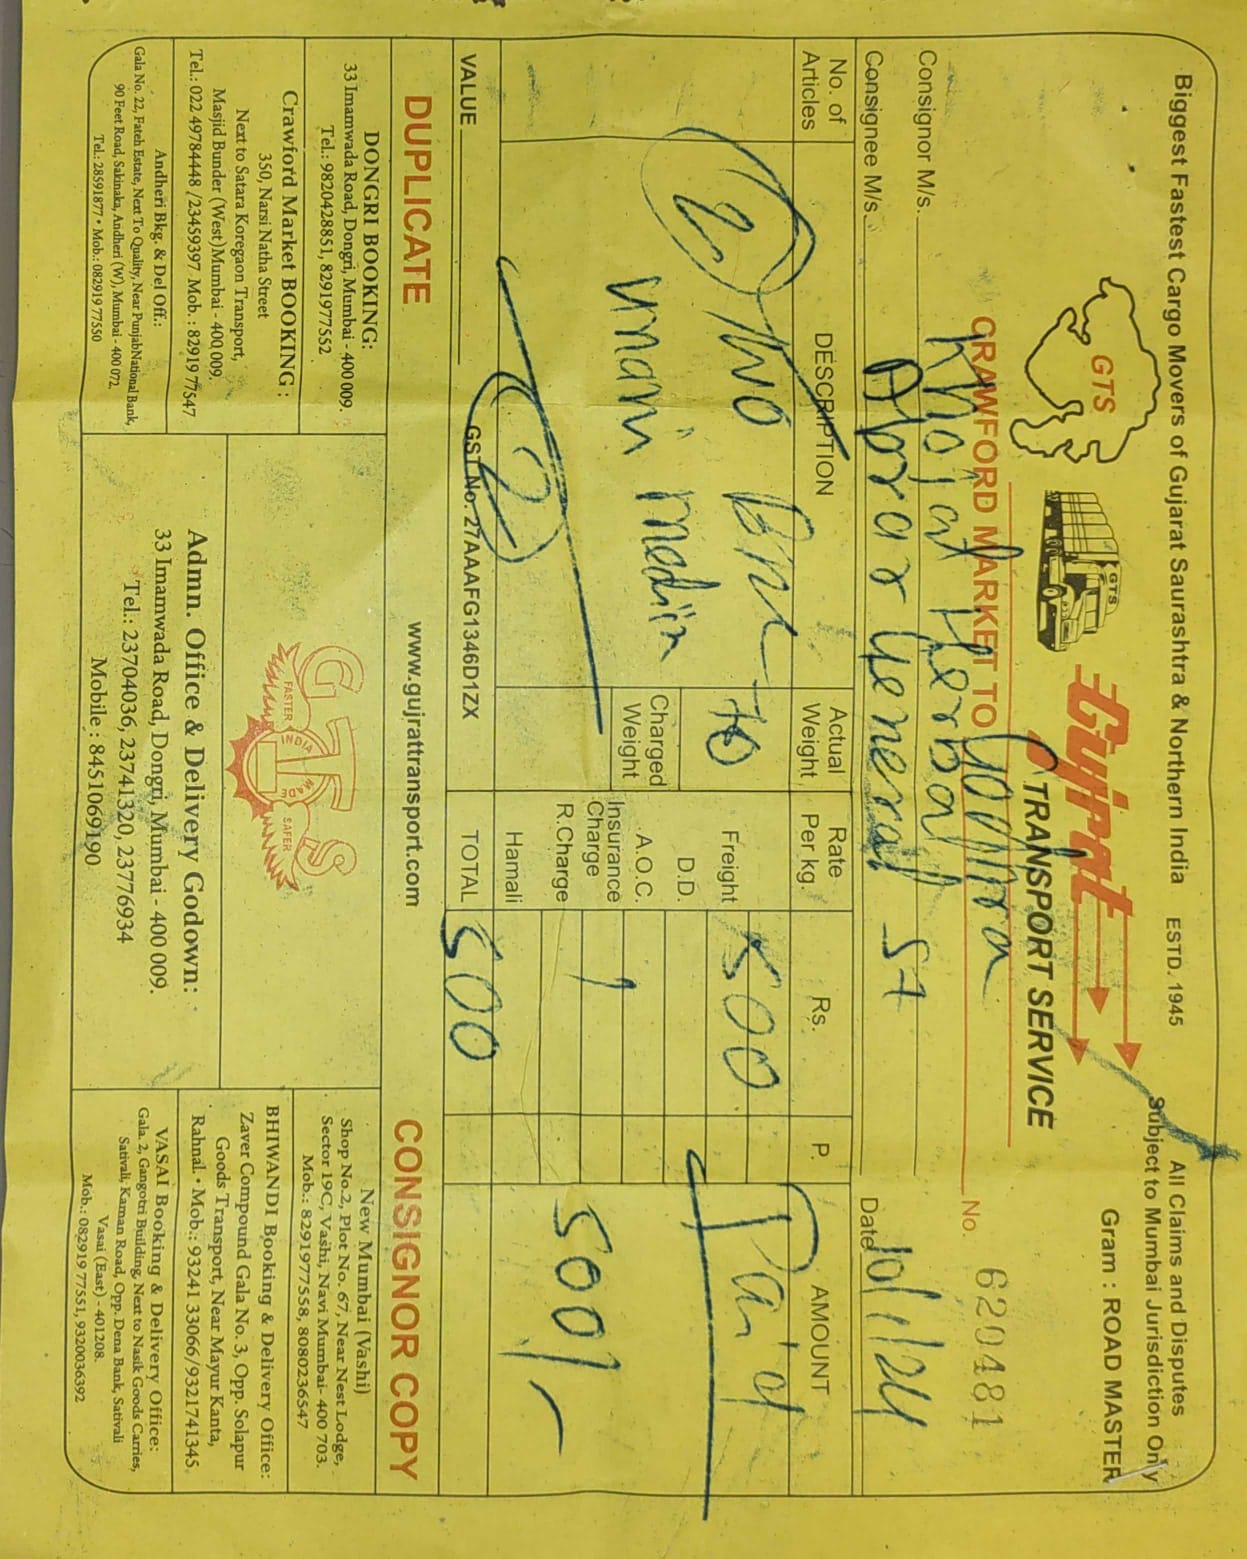 Biggest Fastest Cargo Movers of Gujarat Saurashtra & Northern India ESTD. 1945
All Claims and Disputes
Subject to Mumbai Jurisdiction Only
Gram : ROAD MASTER
GTS
GTS
Gujrat
TRANSPORT SERVICE
CRAWFORD MARKET TO Godhra
No. 620481
Consignor M/s. Khojat Herbal
Consignee M/s. Abrar General St
Date 10/1/24
No. of Articles
DESCRIPTION
Actual Weight
Rate Per kg.
Rs.
P.
AMOUNT
2 Two
unani
70
Charged Weight
Freight 500
D.D.
A.O.C.
Insurance Charge
R.Charge
Hamali
Paid
500/-
2
VALUE
GST No. 27AAAFG1346D1ZX
TOTAL 500
DUPLICATE
www.gujrattransport.com
CONSIGNOR COPY
DONGRI BOOKING:
33 Imamwada Road, Dongri, Mumbai - 400 009.
Tel.: 9820428851, 8291977552
Crawford Market BOOKING :
350, Narsi Natha Street
Next to Satara Koregaon Transport,
Masjid Bunder (West)Mumbai - 400 009.
Tel.: 022 49784448 /23459397 Mob. : 82919 77547
Andheri Bkg. & Del Off.:
Gala No. 22, Fateh Estate, Next To Quality, Near PunjabNational Bank,
90 Feet Road, Sakinaka, Andheri (W), Mumbai - 400 072.
Tel.: 28591877 • Mob.: 082919 77550
GTS
FASTER
INDIA
MADE
SAFER
Admn. Office & Delivery Godown:
33 Imamwada Road, Dongri, Mumbai - 400 009.
Tel.: 23704036, 23741320, 23776934
Mobile : 8451069190
New Mumbai (Vashi)
Shop No.2, Plot No. 67, Near Nest Lodge,
Sector 19C, Vashi, Navi Mumbai- 400 703.
Mob.: 8291977558, 8080236547
BHIWANDI Booking & Delivery Office:
Zaver Compound Gala No. 3, Opp. Solapur
Goods Transport, Near Mayur Kanta,
Rahnal. • Mob.: 93241 33066/9321741345
VASAI Booking & Delivery Office:
Gala. 2, Gangotri Building, Next to Nasik Goods Carries,
Sativali, Kaman Road, Opp. Dena Bank, Sativali
Vasai (East) - 401208.
Mob.: 082919 77551, 9320036392